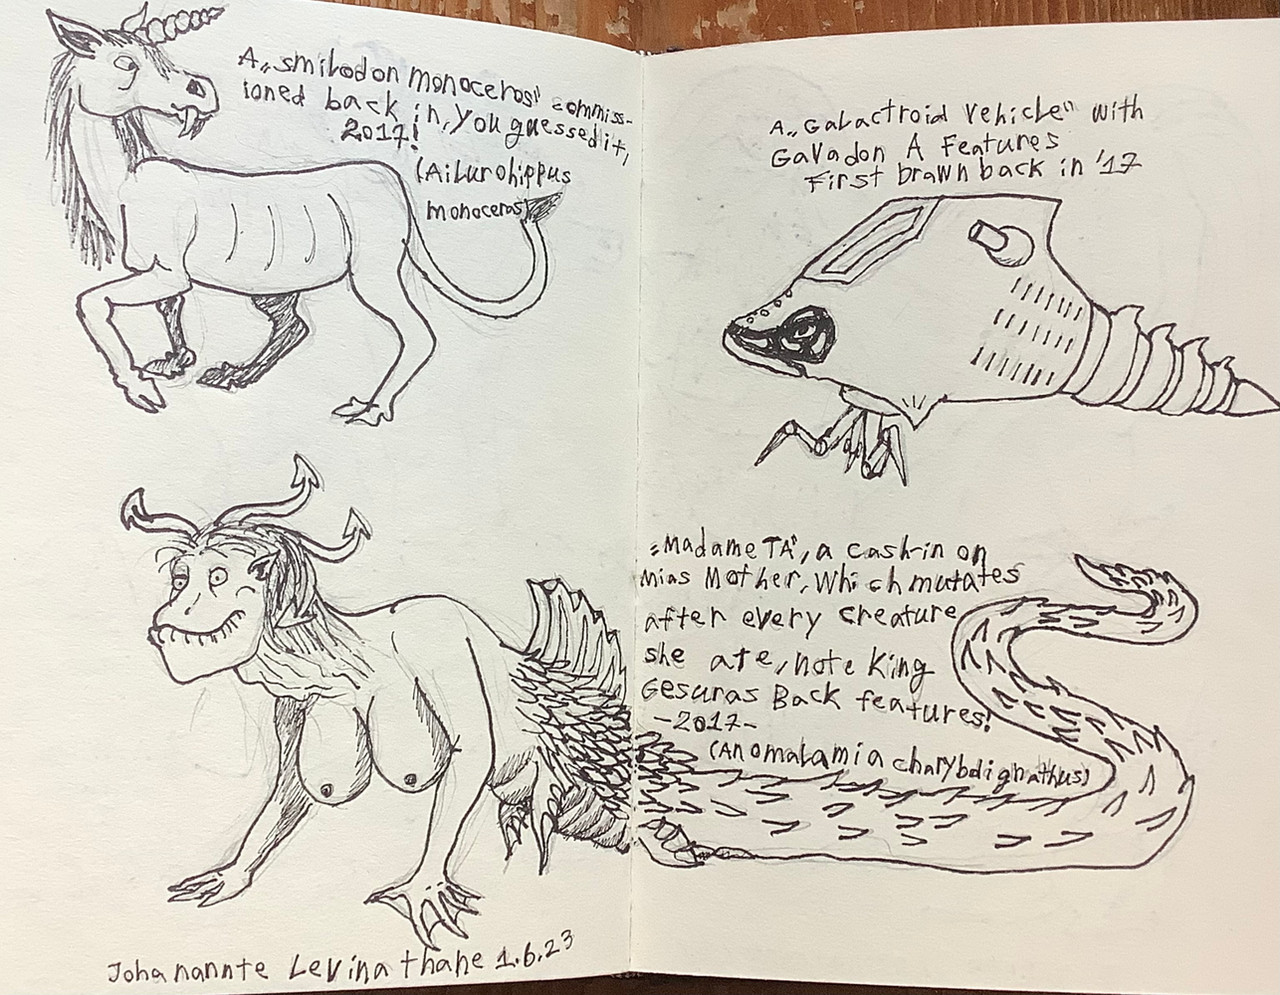 A „smilodon monoceros" commiss-
ioned back in, you guessed it,
2017!
(Ailurohippus
monoceras)
A „Galactroid vehicle" with
Gavadon A Features
First brawn back in '17
„Madame TA", a cash-in on
Mias Mother, which mutates
after every creature
she ate, note King
Gesuras Back features!
-2017-
(Anomalamia charybdignathus)
Johanannte Levinathane 1.6.23